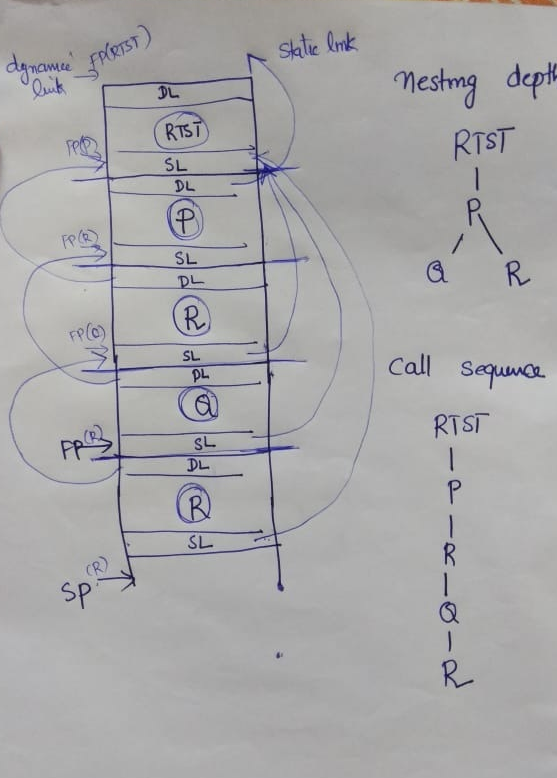 dynamic link
FP(RTST)
static link
DL
RTST
FP(P)
SL
DL
P
FP(R)
SL
DL
R
FP(Q)
SL
DL
Q
FP(R)
SL
DL
R
SL
SP(R)
Nesting depth
RTST
P
Q R
Call sequence
RTST
P
R
Q
R